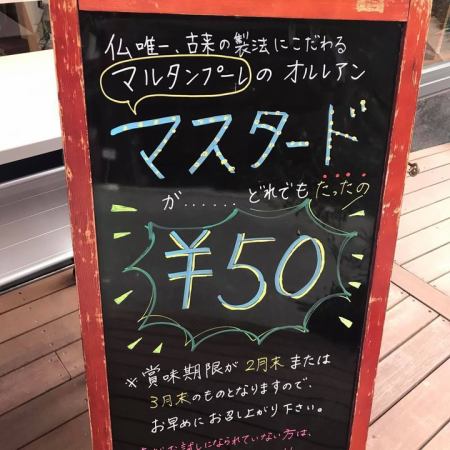 仏唯一、古来の製法にこだわる
マルタンプーレの オルレアン
マスタード
が...... どれでも たったの
¥50
※賞味期限が 2月末 または
3月末のものとなりますので、
お早めにお召し上がり下さい。
お試しになられていない方は、